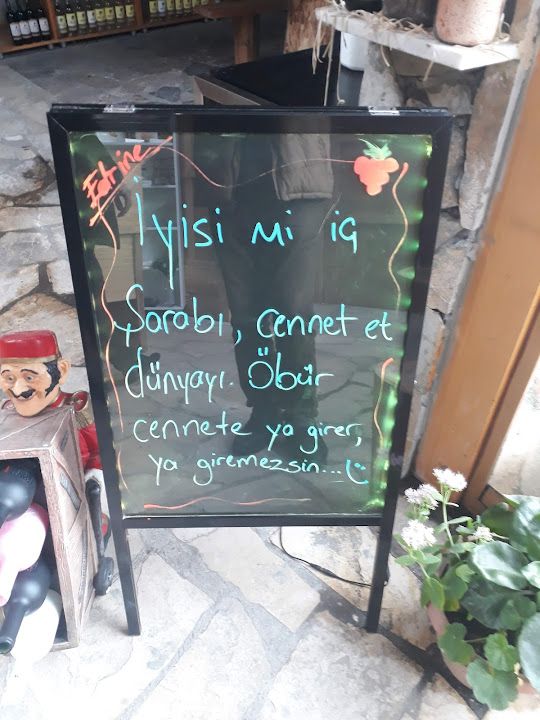 Fehrine
İyisi mi iç
Şarabı, cennet et
dünyayı. Öbür
cennete ya girer,
ya giremezsin...